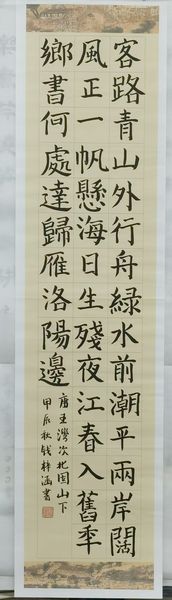 客路青山外行舟綠水前潮平兩岸闊
風正一帆懸海日生殘夜江春入舊年
鄉書何處達歸雁洛陽邊
唐王灣次北固山下
甲辰秋钱梓涵書